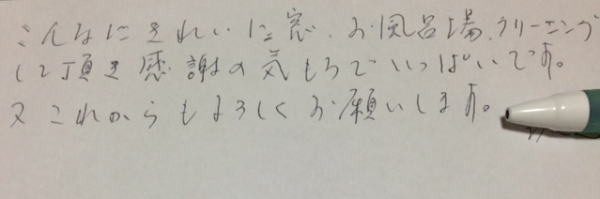 こんなにきれいに窓、お風呂場、クリーニング
して頂き感謝の気もちでいっぱいです。
又これからもよろしくお願いします。